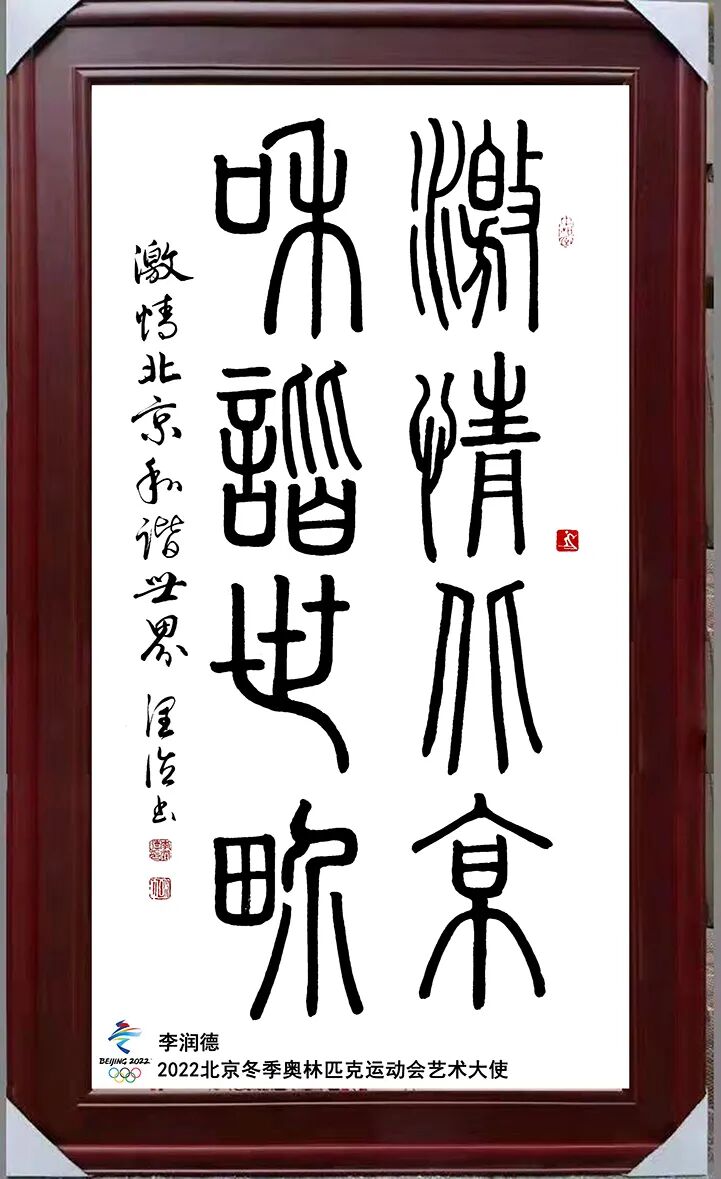 激情北京
和諧世界
激情北京和谐世界 润德书
BEIJING 2022
李润德
2022北京冬季奥林匹克运动会艺术大使